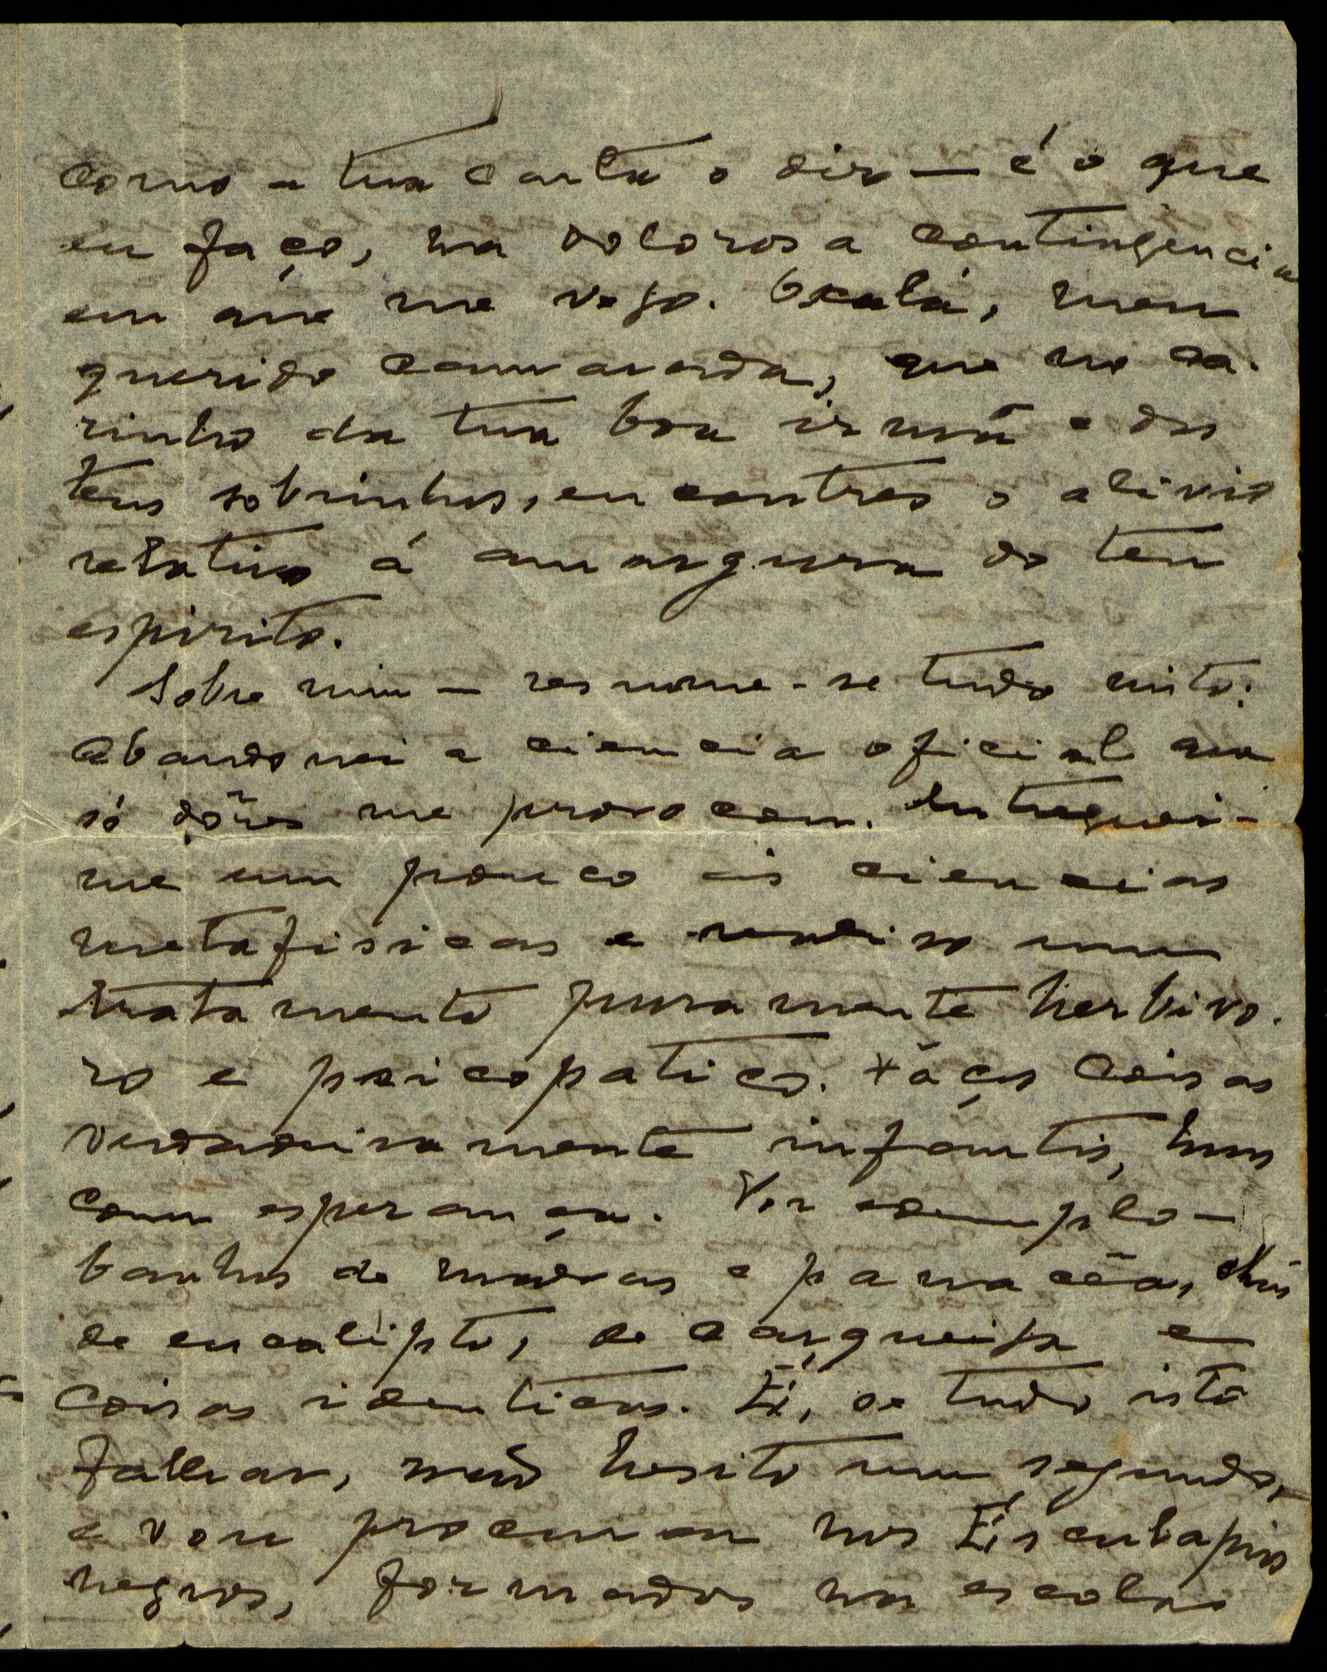 como a tua carta o diz — é o que
eu faço, na dolorosa contingencia
em que me vejo. Oxalá, meu
querido cammarada, que no ca-
rinho da tua boa irmã e dos
teus sobrinhos, encontres o alivio
relativo á amargura do teu
espirito.
Sobre mim — resume-se tudo nisto:
Abandonei a ciencia oficial que
só dôres me provocou. Entreguei-
me um pouco ás ciencias
metafisicas e um
tratamento puramente herbivo-
ro e psicopatico. Fáço coisas
verdadeiramente infantis, mas
com esperança. Por exemplo —
banhos de malvas e panacéa, chás
de eucalipto, de carqueija e
coisas identicas. E, se tudo isto
falhar, não hesito um segundo,
e vou procurar nos Esculapios
negros, formados na escola